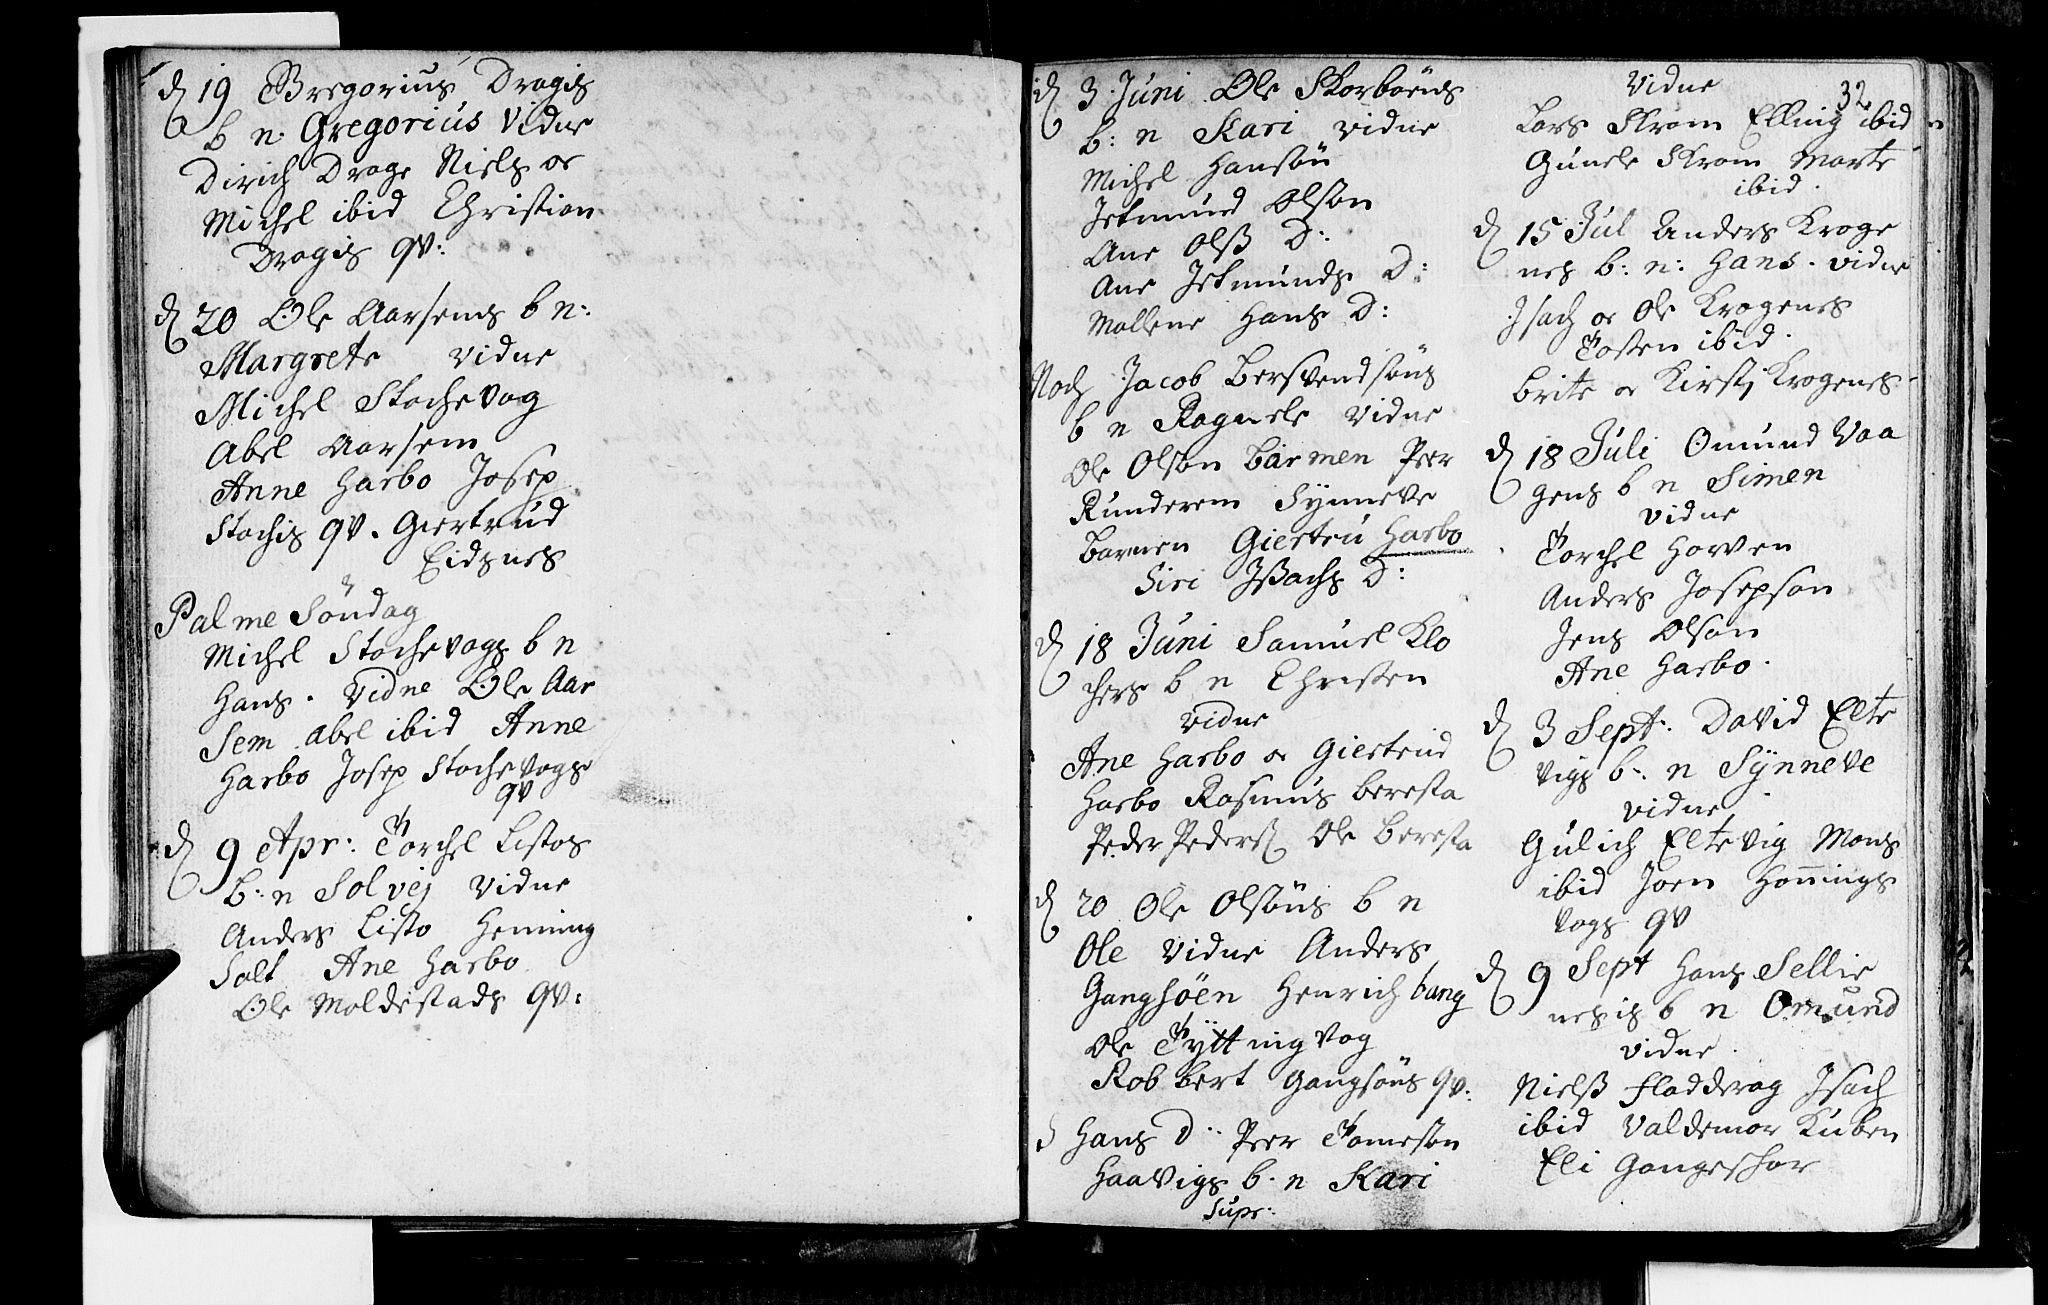 d 19 Gregorius Dragis
b n: Gregorius Vidne
Dirich Drage Niels oc
Michel ibid Christian
Dragis qv:
d 20 Ole Aarsems b n:
Margrete Vidne
Michel Stochevog
Abel Aarsem
Anne Harbo Josep
Stochis qv. Giertrud
Eidsnes
Palme Söndag
Michel Stochevogs b n
Hans. Vidne Ole Aar
Sem Abel ibid Anne
Harbo Josep Stochevogs
qv
d 9 Apr: Torchel Listos
b: n Solvej Vidne
Anders Listo Henning
Salt Ane Harbo
Ole Moldestads qv:
d 3 Juni Ole Skorböens
b: n Kari vidne
Michel Hansön
Jetmund Olson
Ane Olß D:
Ane Jetmunds D:
Mallene Hans D:
Noch Jacob Bersvendsöns
b n Ragnele Vidne
Ole Olson Barmen Peer
Runderem Synneve
Barmen Giertru Harbo
Siri Jßachs D:
d 18 Juni Samuel Klo
chers b n Christen
vidne
Ane Harbo oc Giertrud
Harbo Rasmus Beresta
Peder Peders Ole Beresta
d 20 Ole Olsöns b n
Ole vidne Anders
Gangsöen Henrich bang
Ole Tyttingvog
Robbert Gangsöns qv:
d Hans D: Peer Tomeson
Haavigs b. n Kari
Supr:
32
Vidne
Lars Krom Elling ibid
Gunele Krom Marte
ibid.
d 15 Jul Anders Kroge
nes b: n: Hans. vidne
Jsach oc Ole Krogenes
Tosten ibid.
Brite oc Kirsti Krogenes
d 18 Juli Omund Vaa
gens b n Simen
vidne
Torchel Horven
Anders Josepson
Jens Olson
Ane Harbo.
d 3 Sept: David Elte
vigs b: n Synneve
vidne
Gulich Eltevig Mons
ibid Joen Honnings
vogs qv
d 9 Sept Hans Sellie
nesis b n Omund
vidne.
Nielß Fladderag Jsach
ibid Valdemor Kuben
Eli Gangeschar